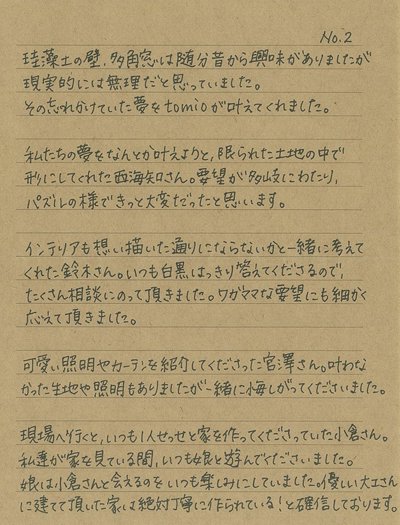 No.2
珪藻土の壁、多角窓は随分昔から興味がありましたが
現実的には無理だと思っていました。
その忘れかけていた夢をtomioが叶えてくれました。
私たちの夢をなんとか叶えようと、限られた土地の中で
形にしてくれた西海矢口さん。要望が多岐にわたり、
パズルの様できっと大変だったと思います。
インテリアも想い描いた通りにならないかと一緒に考えて
くれた鈴木さん。いつも白黒はっきり答えてくださるので、
たくさん相談にのって頂きました。ワガママな要望にも細かく
応えて頂きました。
可愛い照明やカーテンを紹介してくださった宮澤さん。叶わな
かった生地や照明もありましたが一緒に悔しがってくださいました。
現場へ行くと、いつも1人せっせと家を作ってくださっていた小倉さん。
私達が家を見ている間、いつも娘と遊んでくださいました。
娘は小倉さんと会えるのをいつも楽しみにしていました。優しい大工さん
に建てて頂いた家は絶対丁寧に作られている!と確信しております。